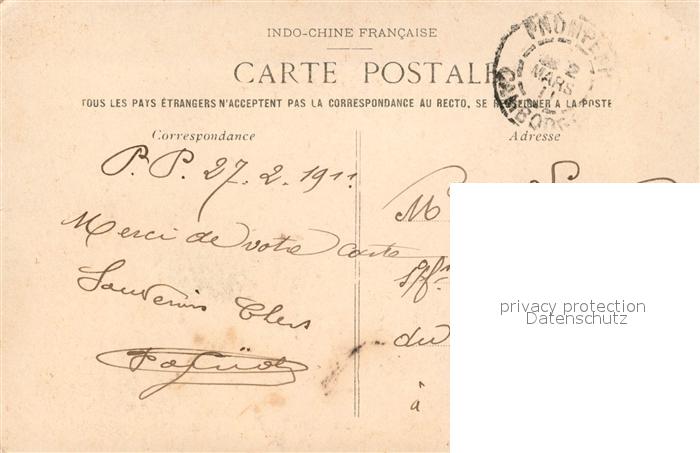 INDO-CHINE FRANÇAISE
CARTE POSTALE
TOUS LES PAYS ÉTRANGERS N'ACCEPTENT PAS LA CORRESPONDANCE AU RECTO, SE RENSEIGNER A LA POSTE
PNOMPENH
2
MARS
11
CAMBODGE
Correspondance
Adresse
P.P. 27.2.1911
Merci de votre carte
Souvenirs
M
du
à
privacy protection
Datenschutz